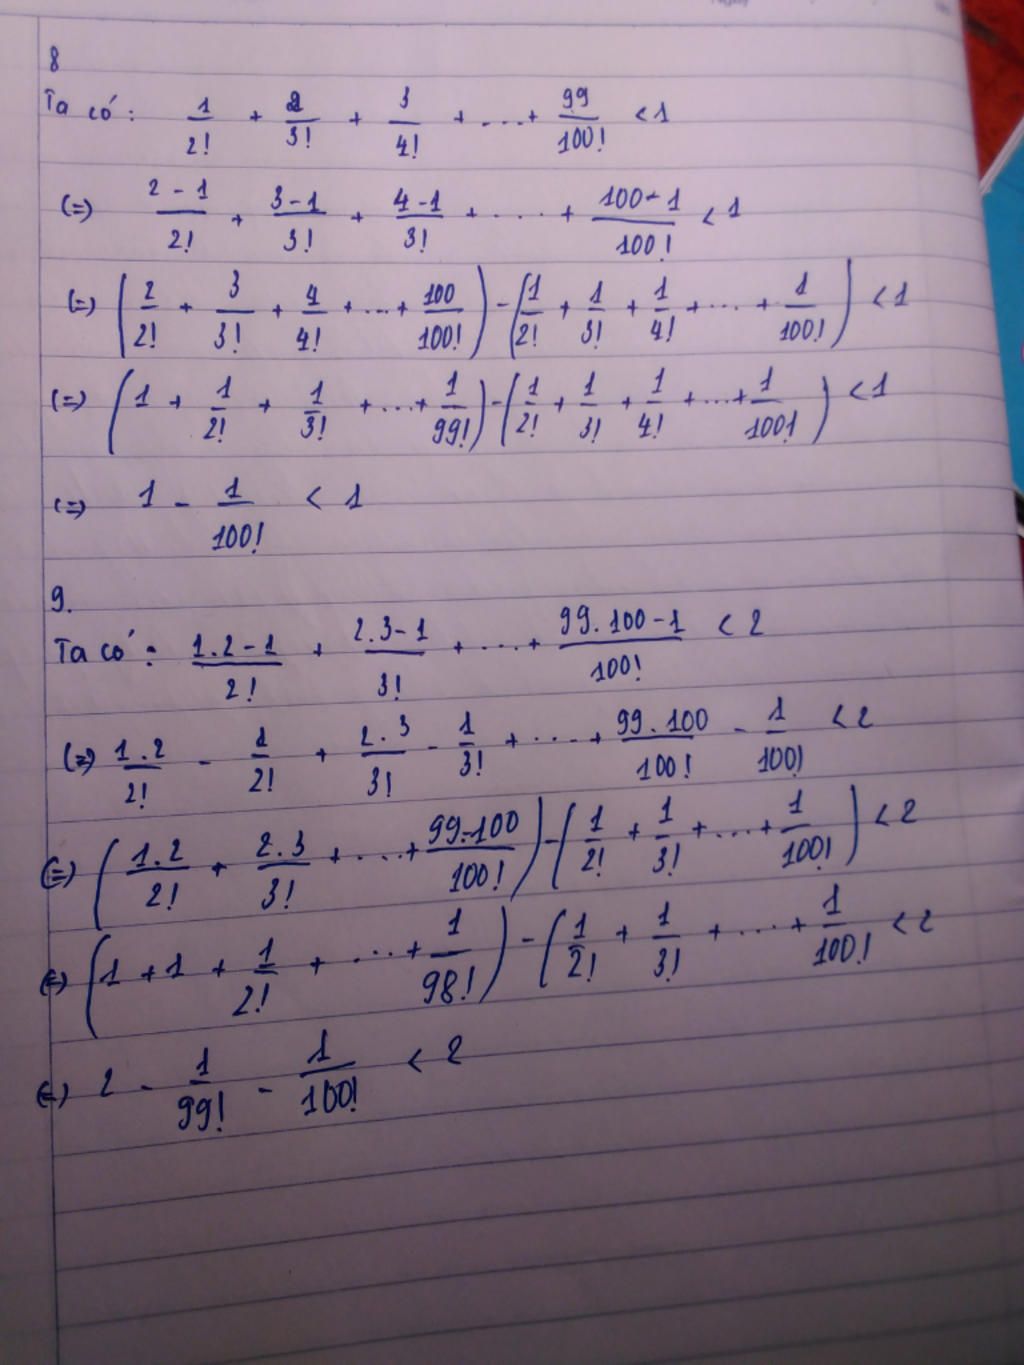 8
Ta có: 1/2! + 2/3! + 3/4! + ...+ 99/100! < 1
(=) (2 - 1)/2! + (3 - 1)/3! + (4 - 1)/3! + .... + (100 - 1)/100! < 1
(=) (2/2! + 3/3! + 4/4! + ...+ 100/100!) - (1/2! + 1/3! + 1/4! + ... + 1/100!) < 1
(=) (1 + 1/2! + 1/3! + ...+ 1/99!) - (1/2! + 1/3! + 1/4! + ...+ 1/100!) < 1
(=) 1 - 1/100! < 1
9.
Ta có: (1.2 - 1)/2! + (2.3 - 1)/3! + ....+ (99.100 - 1)/100! < 2
(=) 1.2/2! - 1/2! + 2.3/3! - 1/3! + ....+ 99.100/100! - 1/100! < 2
(=) (1.2/2! + 2.3/3! + ....+ 99.100/100!) - (1/2! + 1/3! + ...+ 1/100!) < 2
(=) (1 + 1 + 1/2! + ....+ 1/98!) - (1/2! + 1/3! + ....+ 1/100! < 2
(=) 2 - 1/99! - 1/100! < 2